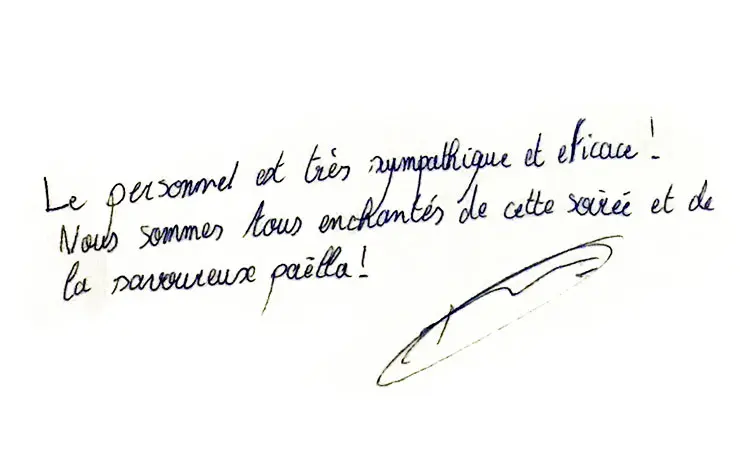 Le personnel est très sympathique et eficace !
Nous sommes tous enchantés de cette soirée et de
la savoureuse paëlla !